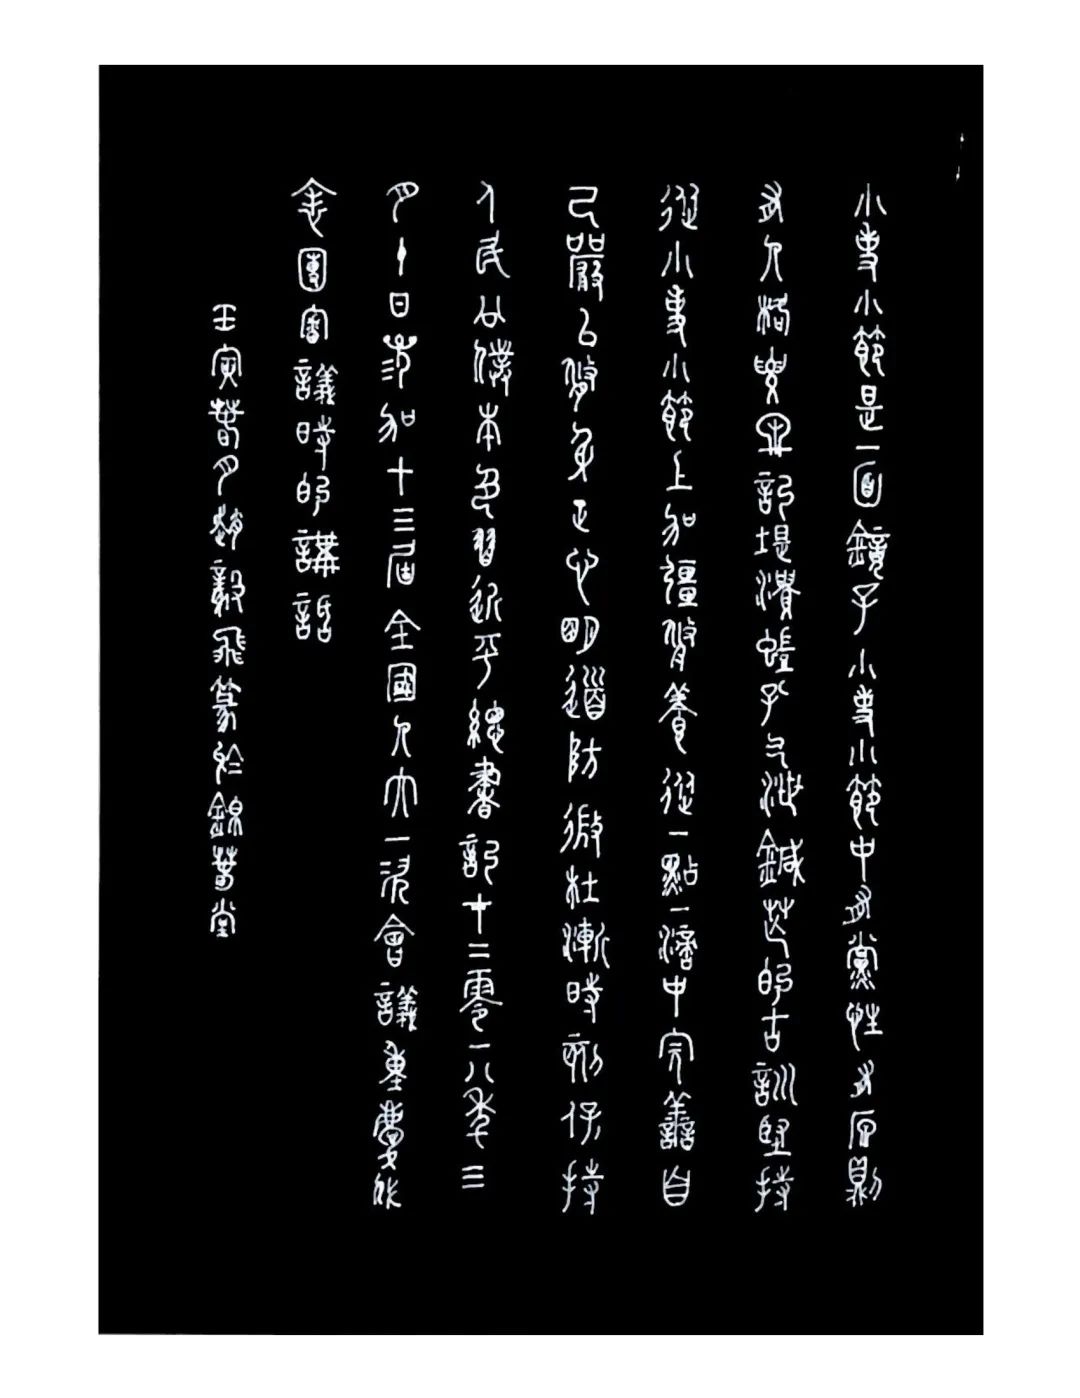 小事小節是一面鏡子小事小節中有黨性有原則
有人格要牢記堤潰蟻孔气洩鍼芒的古訓堅持
從小事小節上加強脩養從一點一滴中完善自
己嚴以脩身正心明道防微杜漸時刻保持
人民公僕本色習近平總書記十二零一八年三
月十日參加十三屆全國人大一次會議重慶代
表團審議時的講話
壬寅春月趙毅飛篆於錦葉堂